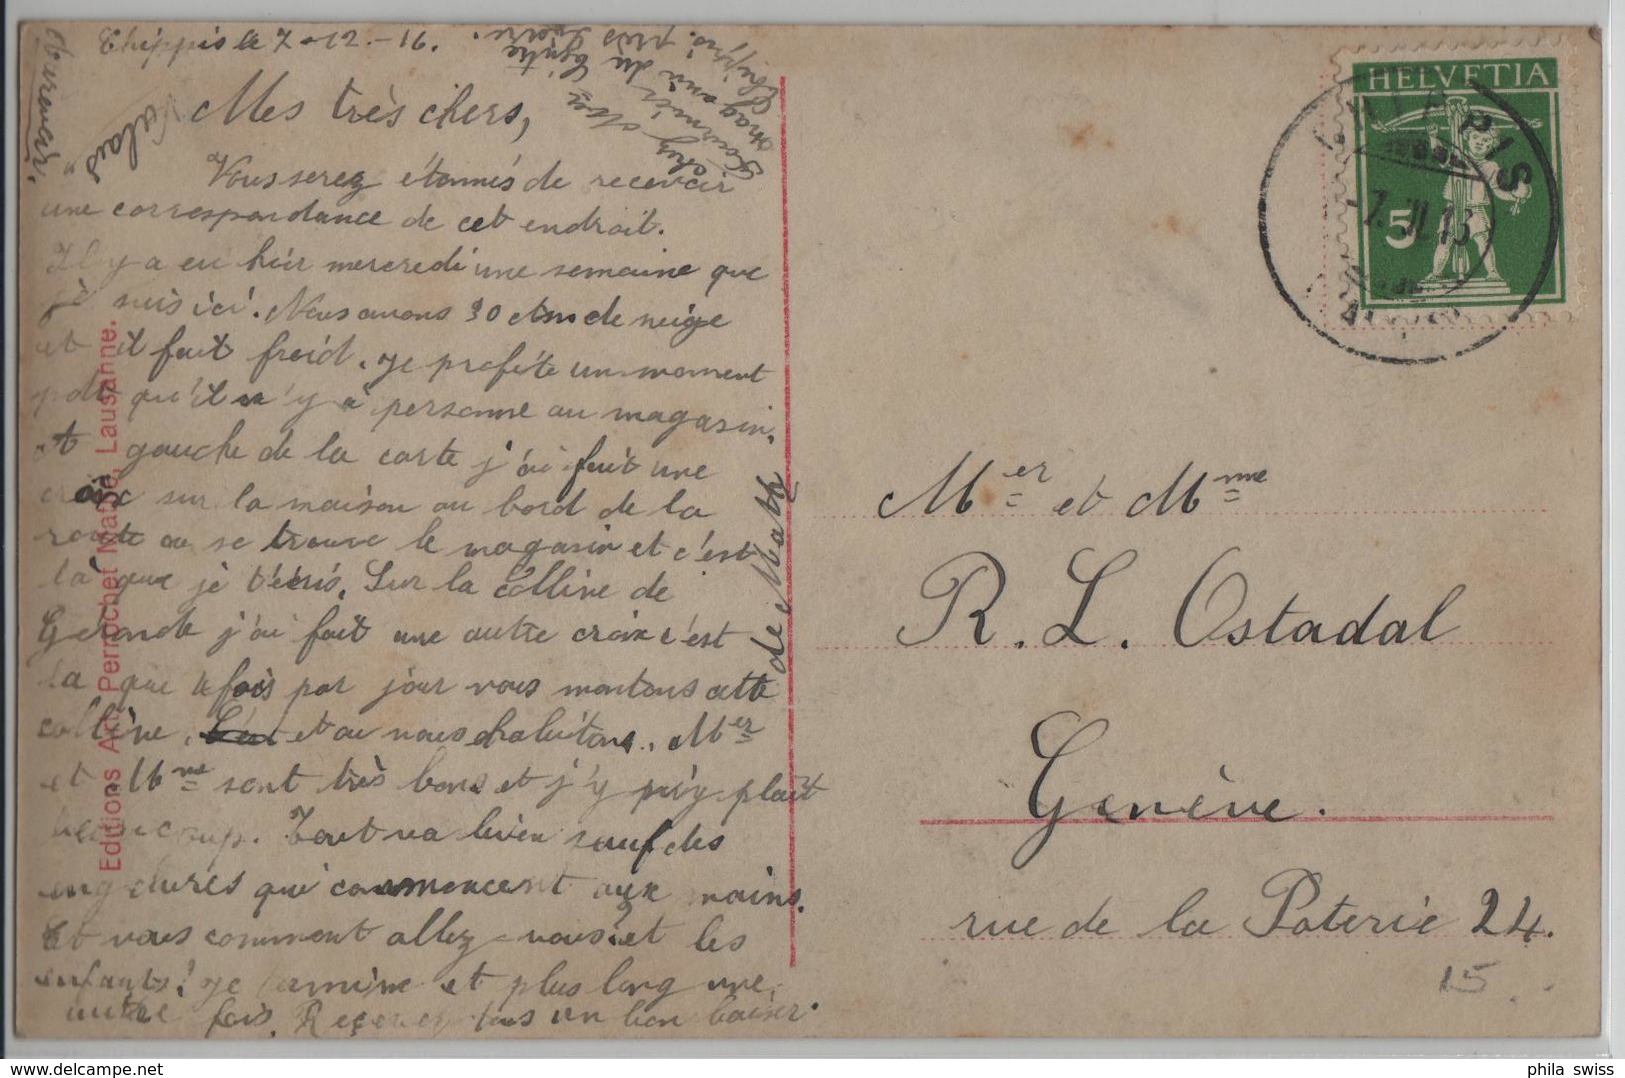 Chippis le 7-12-16.
Mes très chers,
Vous serez étonnés de recevoir
une correspondance de cet endroit.
Il y a eu hier mercredi une semaine que
je suis ici. Nous avons 30 ctm de neige
et il fait froid. Je profite un moment
qu'il n'y a personne au magasin.
A gauche de la carte j'ai fait une
croix sur la maison au bord de la
route ou se trouve le magasin et c'est
là que je t'écris. Sur la colline de
Géronde j'ai fait une autre croix c'est
la que 4 fois par jour nous montons cette
colline, et ou nous habitons. Mer
et Mme sont très bons et j'y plait
beaucoup. Tout va bien sauf des
engelures qui commencent aux mains.
Et vous comment allez-vous? et les
enfants? Je termine et plus long une
autre fois. Recevez tous un bon baiser.
de Math
chez Mon
Fournier
magasin du Centre
Chippis. près Sierre.
Valais
au revoir.
Editions Art. Perrochet Matile, Lausanne.
HELVETIA
5
CHIPPIS
Mer et Mme
R. L. Ostadal
Genève.
rue de la Poterie 24.
15
phila swiss